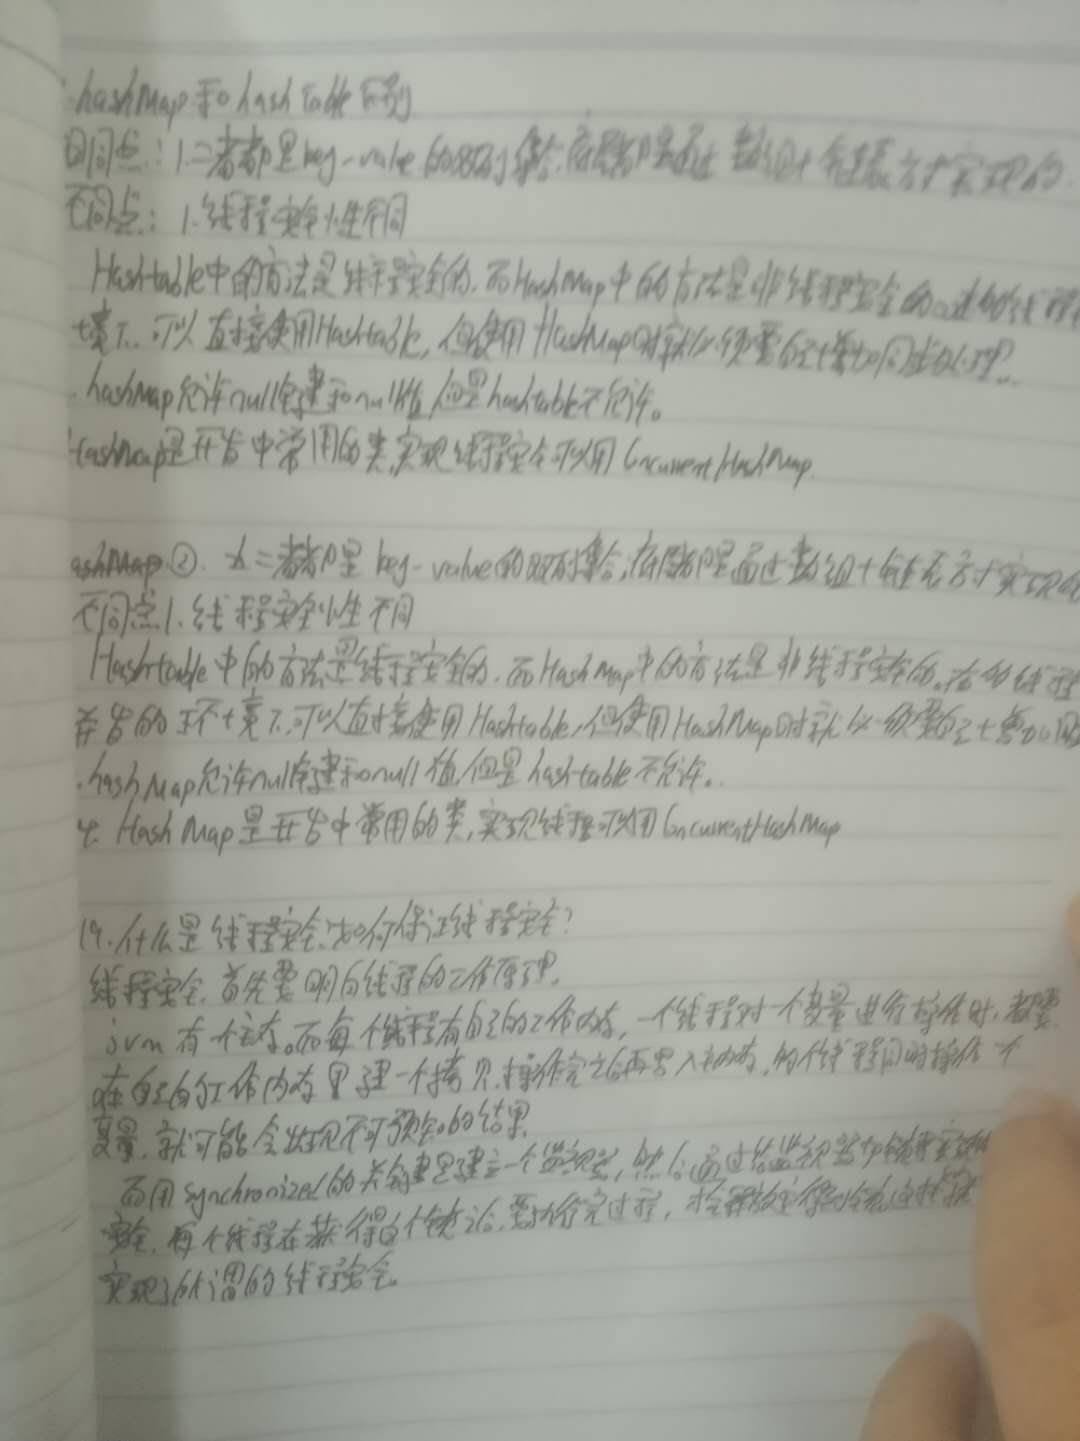 hashMap和hashTable区别
同点：1.二者都是key-value的双列集合，底层都是通过数组+链表方式实现的
不同点：1.线程安全性不同
Hashtable中的方法是线程安全的，而HashMap中的方法是非线程安全的。
境下，可以直接使用Hashtable，但使用HashMap时就必须要自己增加同步处理。
hashMap允许null键和null值，但是hashtable不允许。
HashMap是开发中常用的类，实现线程安全可以用ConcurrentHashMap.
ashMap ②. 二者都是key-value的双列集合，底层都是通过数组+链表方式实现
不同点1.线程安全性不同
Hashtable中的方法是线程安全的，而HashMap中的方法是非线程安全的。在多线程
并发的环境下，可以直接使用Hashtable，但使用HashMap时就必须要自己增加同
.hashMap允许null键和null值，但是hashtable不允许。
4. HashMap是开发中常用的类，实现线程可以用ConcurrentHashMap
19.什么是线程安全？如何保证线程安全？
线程安全，首先要明白线程的工作原理，
jvm有一个主存。而每个线程有自己的工作内存，一个线程对一个变量进行操作时，都要
在自己的工作内存里建一个拷贝，操作完之后再写入主内存，多个线程同时操作一个
变量，就可能会出现不可预知的结果
而用synchronized的关键是建立一个监视器，然后通过给监视器加锁
安全，每个线程在获得这个锁之后，要执行完过程，才会释放
实现了所谓的线程安全。